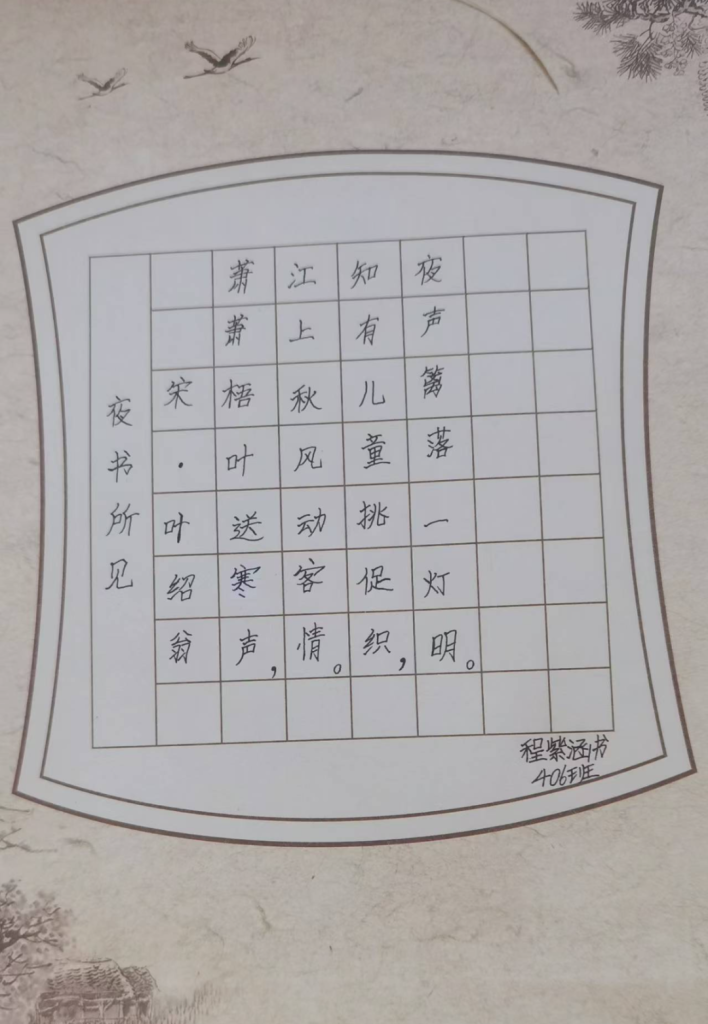 夜书所见
宋·叶绍翁
萧萧梧叶送寒声，
江上秋风动客情。
知有儿童挑促织，
夜声篱落一灯明。
程紫涵书
406班